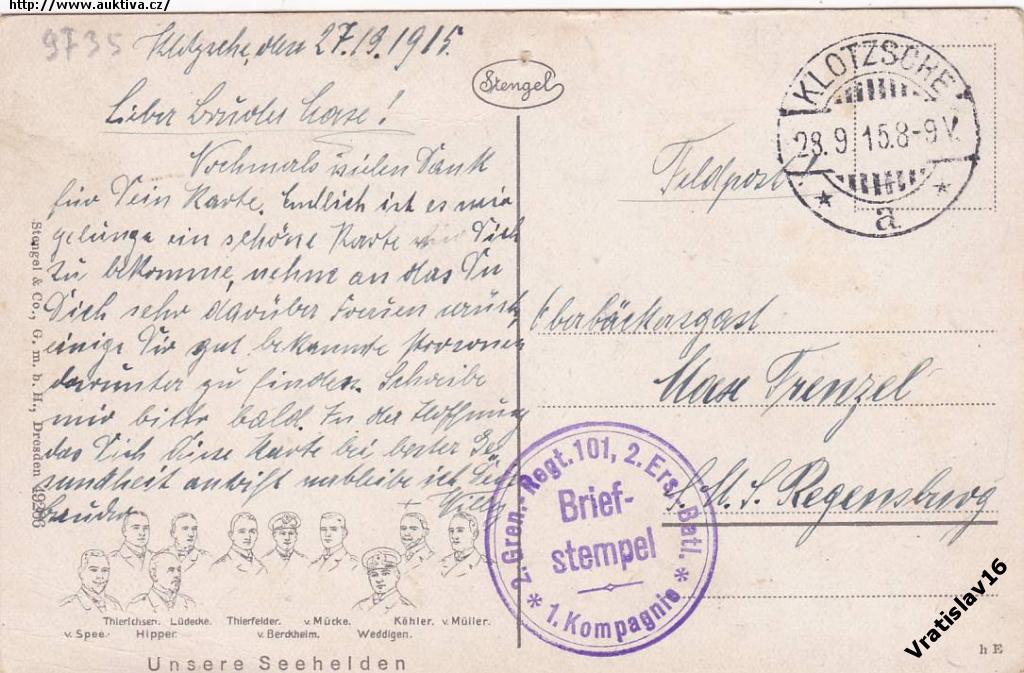 http://www.auktiva.cz/
9735
Klotzsche, den 27.19.1915.
Lieber Bruder Maxe!
Nochmals vielen Dank
für Dein Karte. Endlich ist es mir
gelunge ein schöne Karte für Dich
zu bekomme, nehme an das Du
Dich sehr darüber Freuen wirst,
einige Dir gut bekannte Personen
darunter zu finden. Schreibe
mir bitte bald. In der Hoffnung
das Dich diese Karte bei bester Ge
sundheit antrift verbleibe ich, Dein
Bruder Willy
Stengel
Stengel & Co., G. m. b. H., Dresden 49206
Feldpost
KLOTZSCHE
28.9.15.8-9V.
* a *
Oberbäckersgast
Max Frenzel
S.M.S Regensburg
2. Gren.-Regt. 101, 2. Ers. Batl.
Brief-
stempel
* 1. Kompagnie *
Thierichsen. Lüdecke. Thierfelder. v. Mücke. Köhler. v. Müller.
v. Spee. Hipper. v. Berckheim. Weddigen.
Unsere Seehelden
h E
Vratislav16